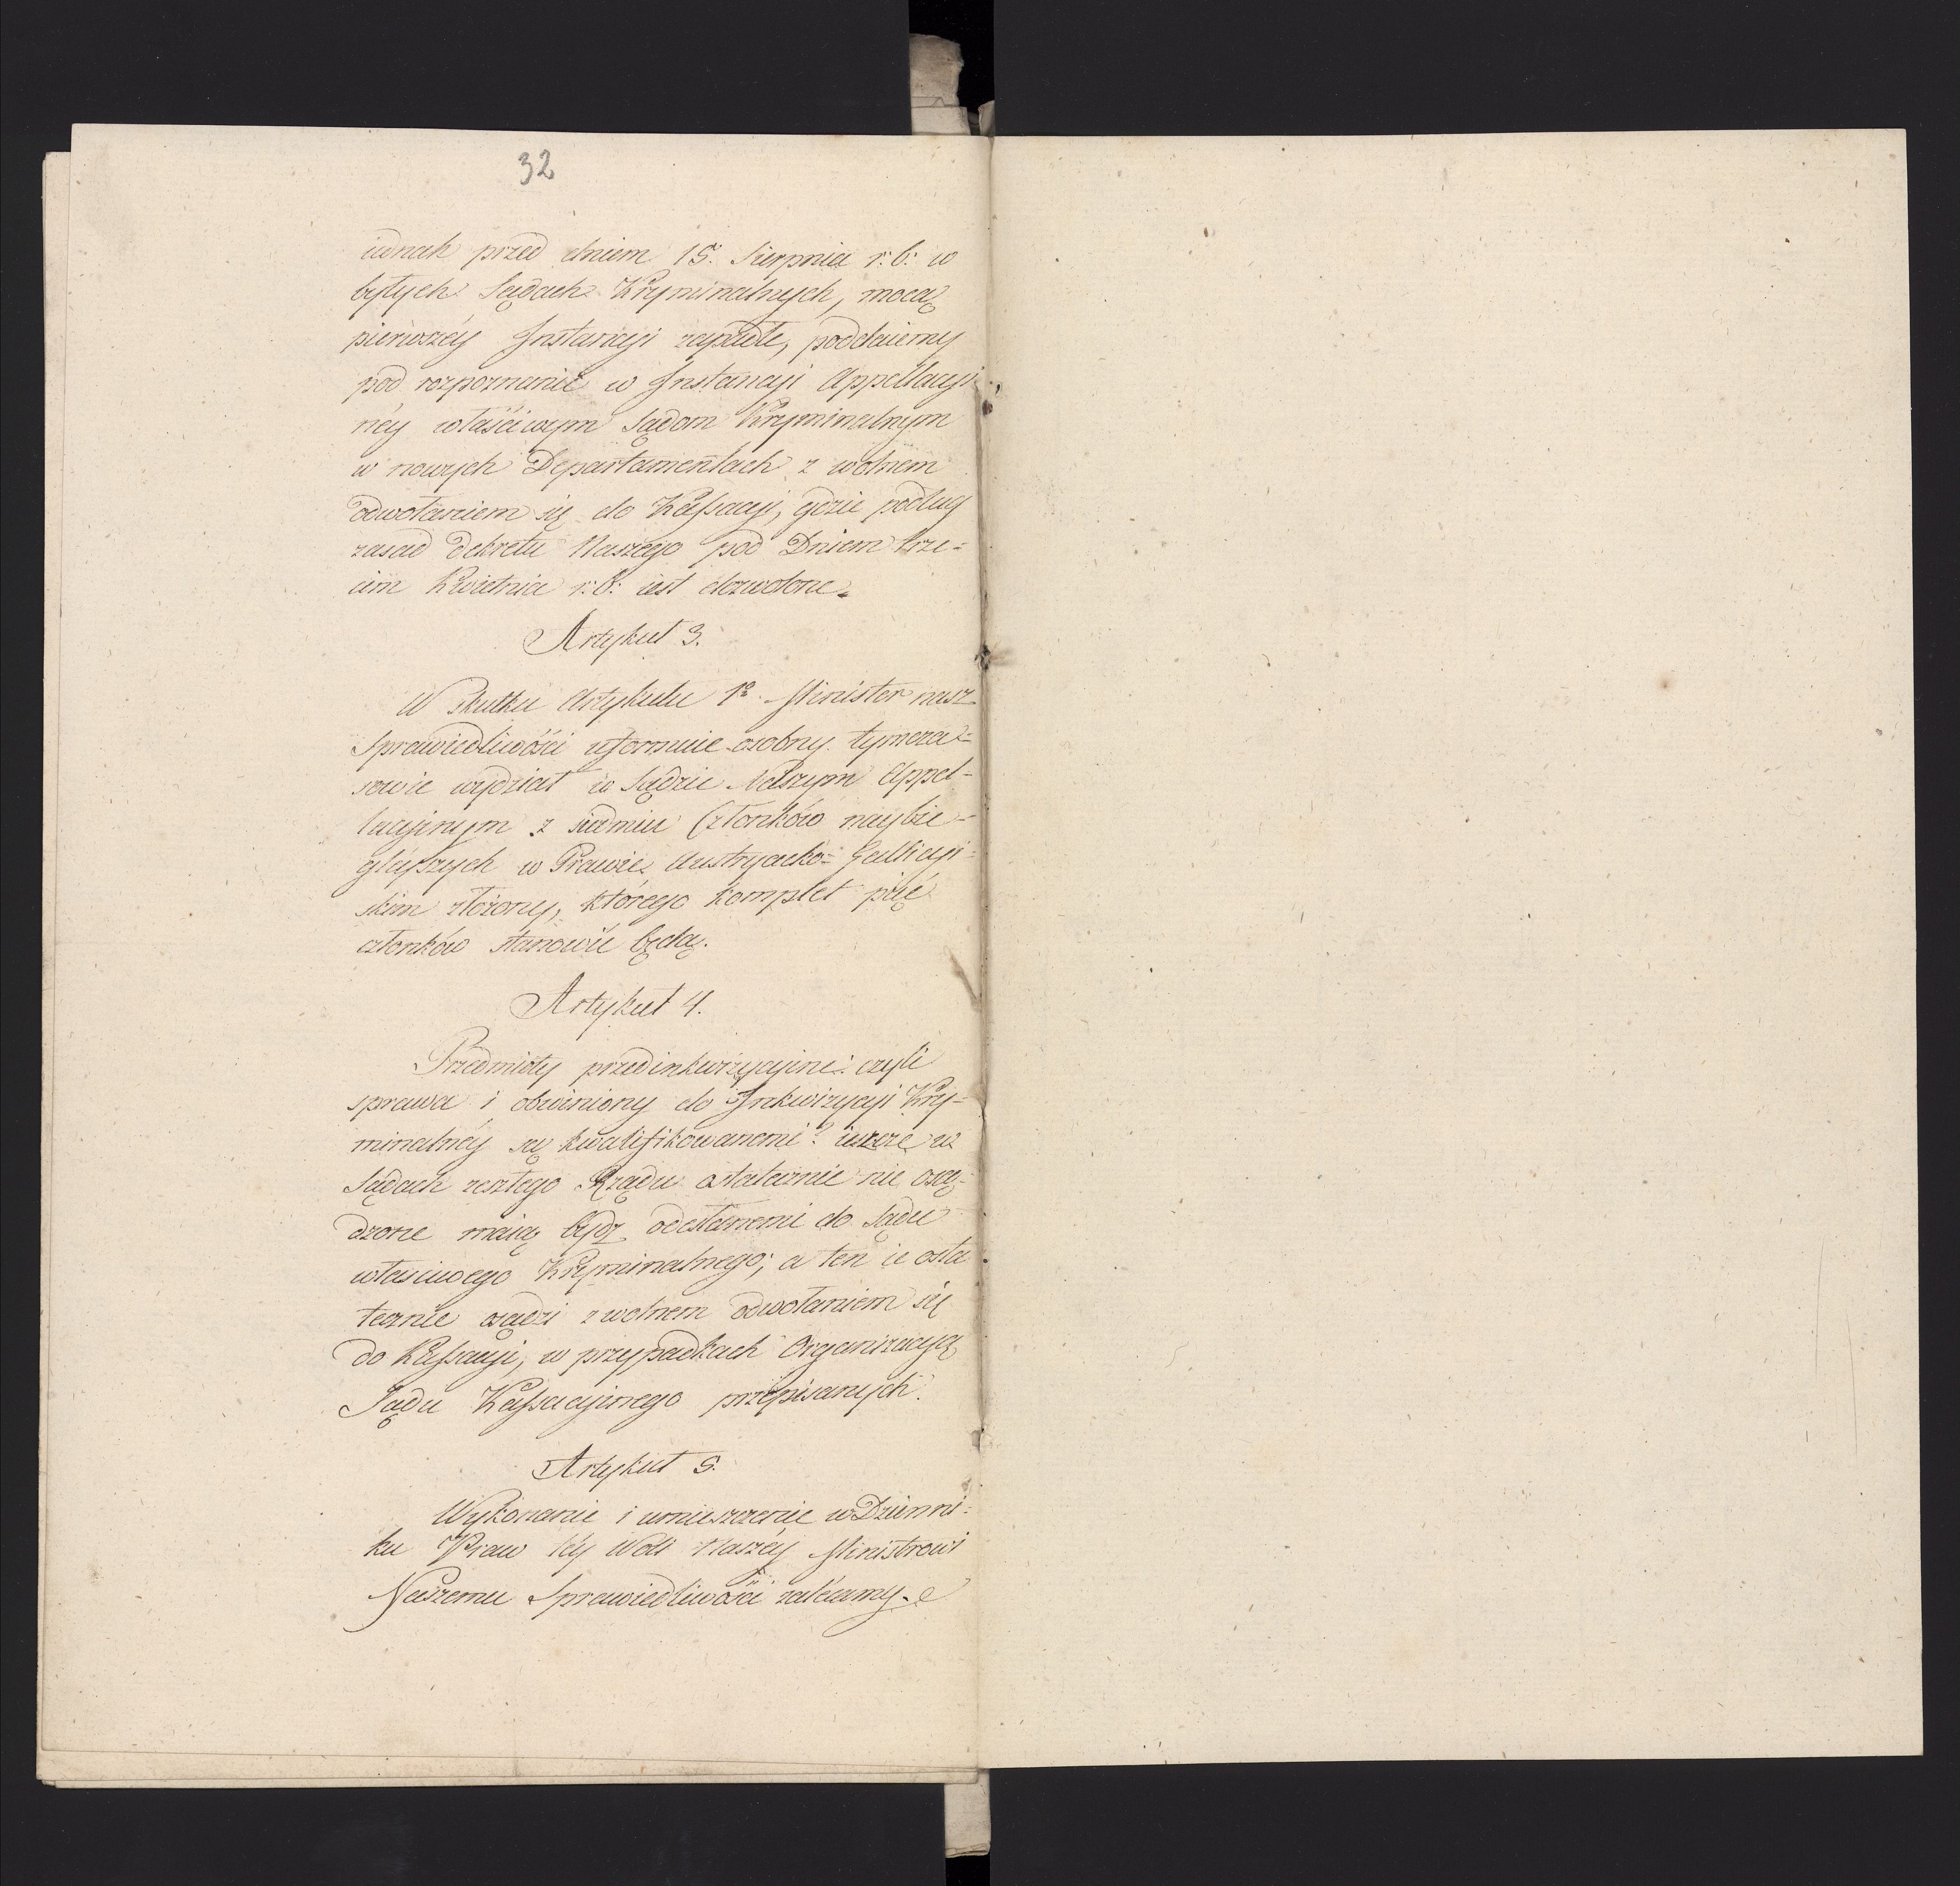 32
iednak przed dniem 15. Sierpnia r: b: w
byłych Sądach Kryminalnych, mocą
pierwszéy Instancyi zapadłe, poddaiemy
pod rozpoznanie w Instancyi Appellacyi
néy właściwym Sądom Kryminalnym
w nowych Departamentach z wolnem
odwołaniem się do Kassacyi, gdzie podług
zasad Dekretu Naszego pod Dniem trze=
cim Kwietnia r: b: iest dozwolone.
Artykuł 3.
W skutku Artykułu 1º Minister nasz
Sprawiedliwości uformuie osobny tymcza=
sowie wydział w Sądzie Naszym Appel=
lacyinym z siedmiu Członków naybie=
gléyszych w Prawie Austryacko= Gallicyi=
skim złożony, którego komplet pięć
członków stanowić będą.
Artykuł 4.
Przedmioty przedinkwizycyine: czyli
sprawa i obwiniony do Inkwizycyi Kry=
minalnéy są kwalifikowanemi? ieszcze w
Sądach zeszłego Rządu ostatecznie nie osą=
dzone maią bydź odesłanemi do Sądu
właściwego Kryminalnego; a ten ie osta
tecznie osądzi z wolnem odwołaniem się
do Kassacyi, w przypadkach Organizacyą
Sądu Kassacyinego przepisanych.
Artykuł 5.
Wykonanie i umieszczenie w Dzienni=
ku Praw téy Woli Naszéy Ministrowi
Naszemu Sprawiedliwości zalécamy.